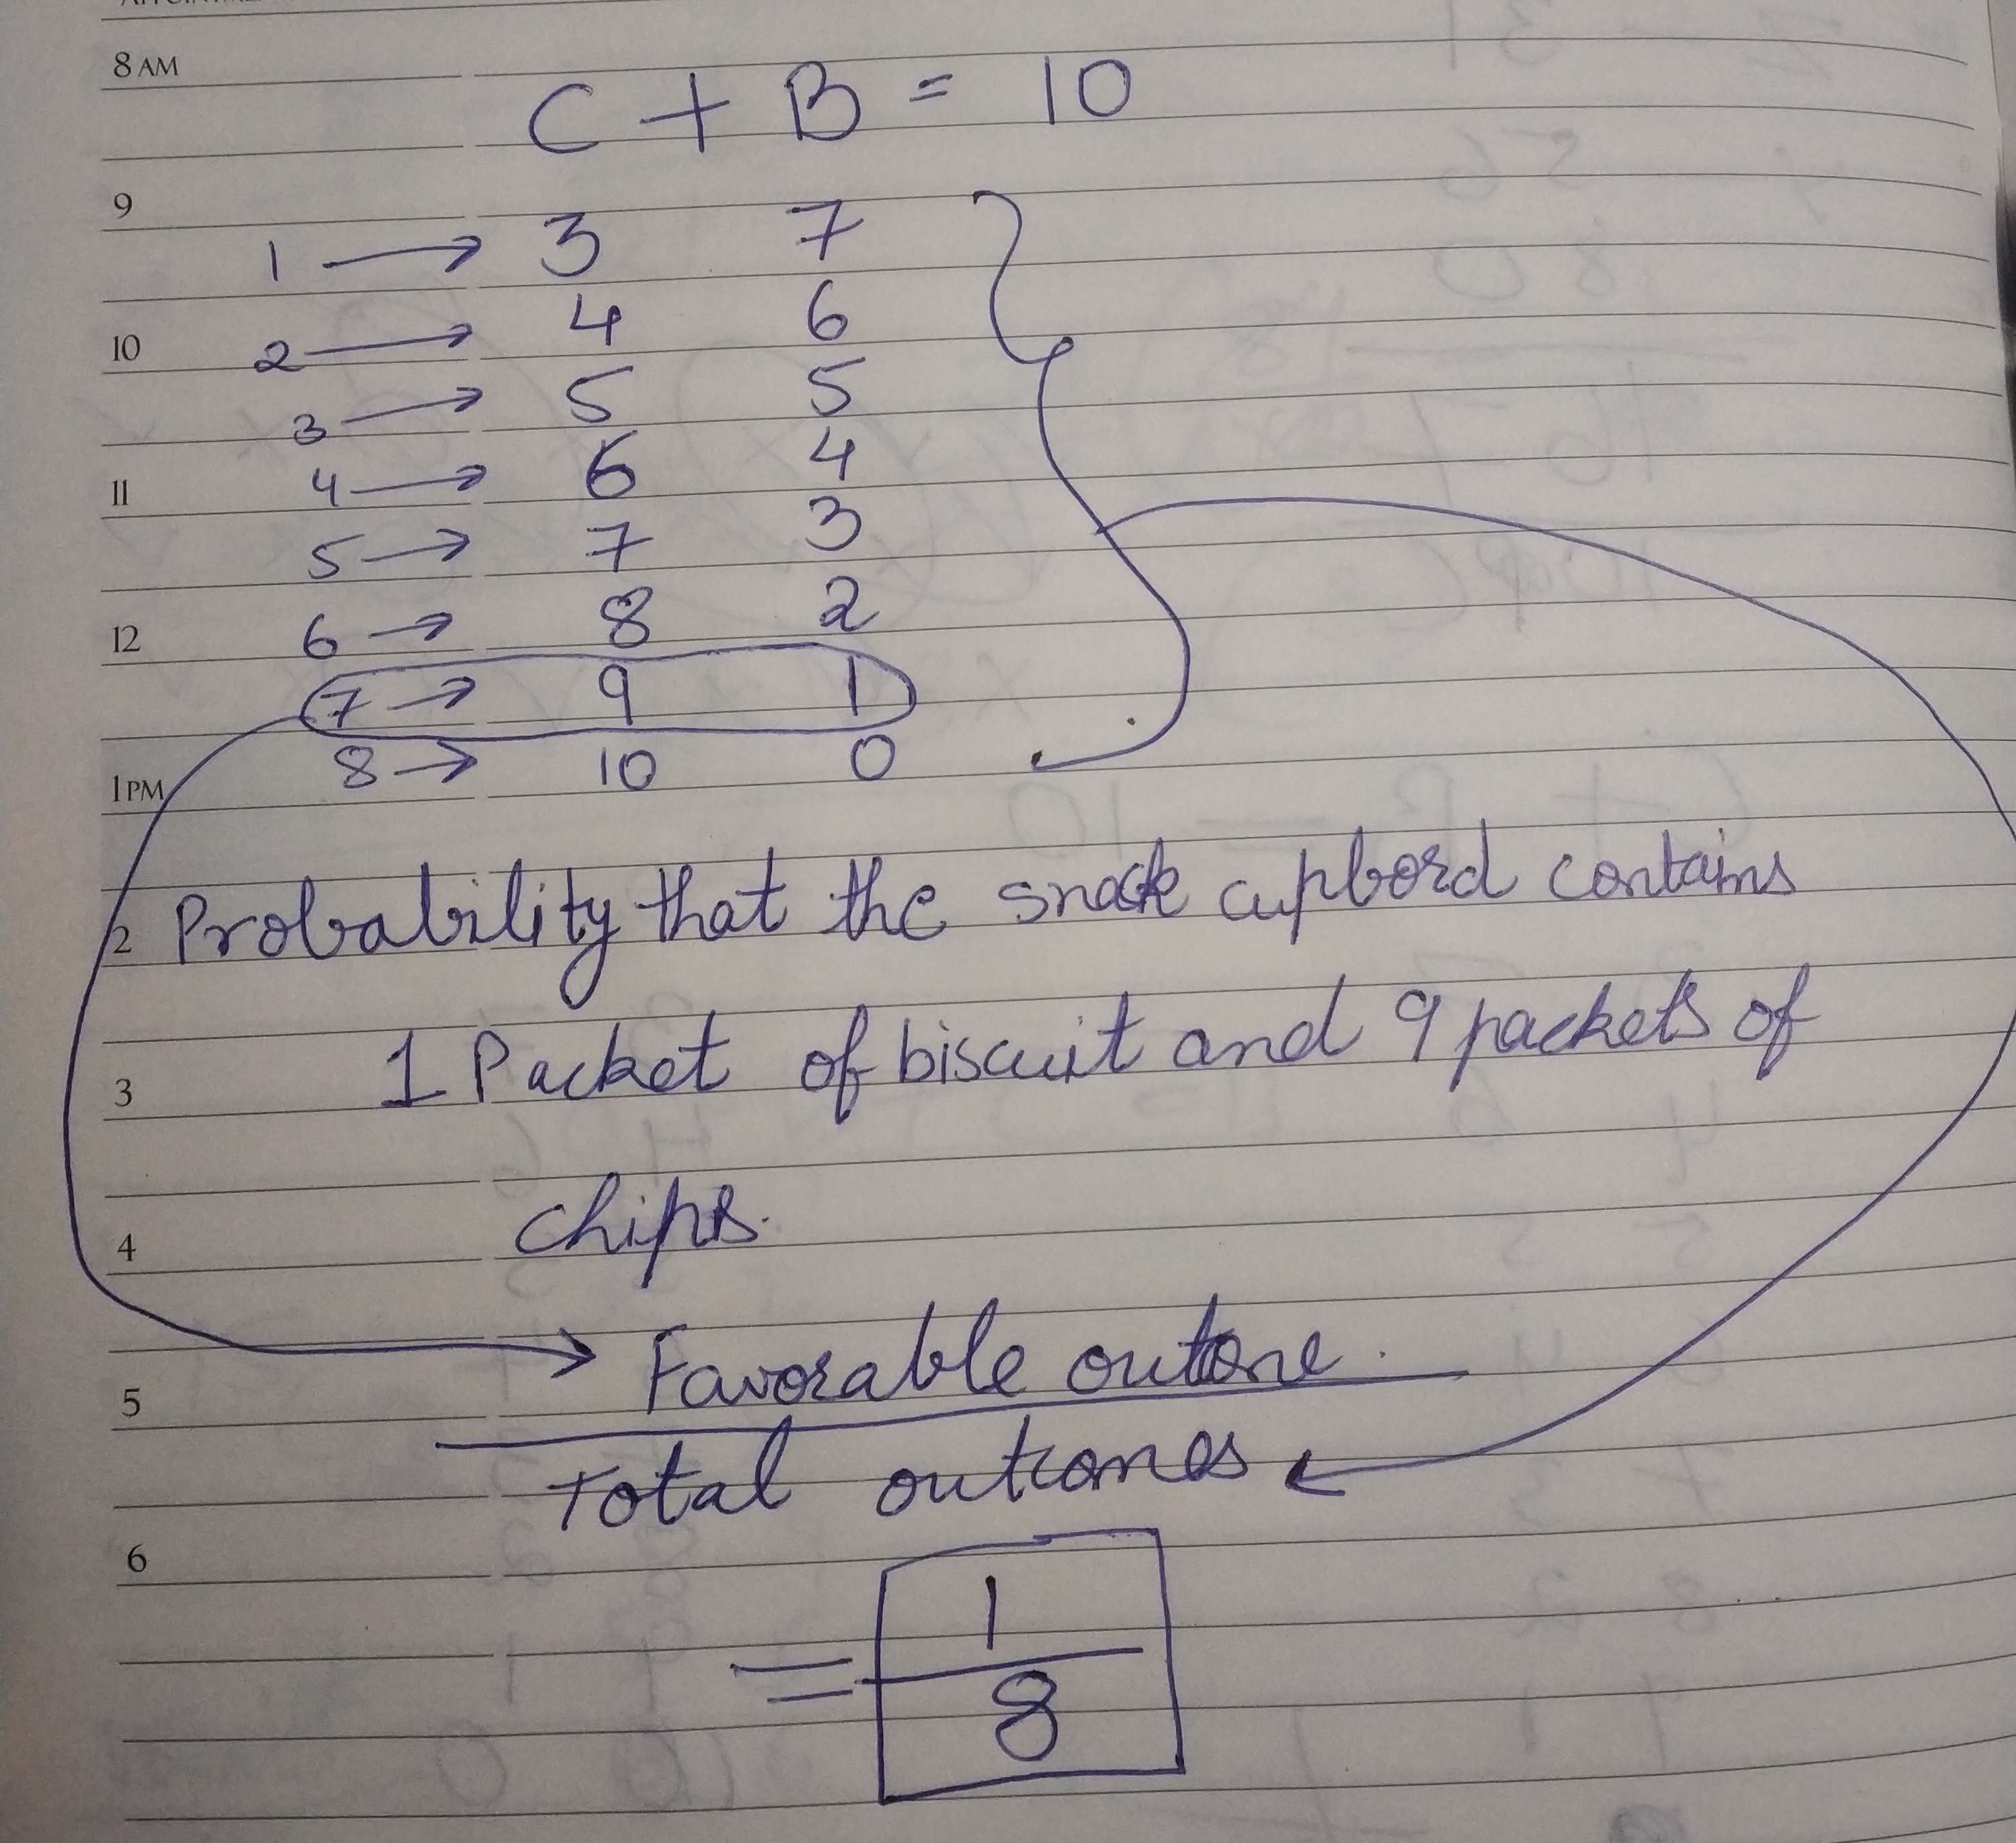 8 AM
C + B = 10
9
1 → 3 7
10
2 → 4 6
3 → 5 5
11
4 → 6 4
5 → 7 3
12
6 → 8 2
7 → 9 1
1 PM
8 → 10 0
2 Probability that the snack cupbord contains
3 1 Packet of biscuit and 9 packets of
4 chips.
Favorable outcone.
5
Total outcomes
6
= 1
8